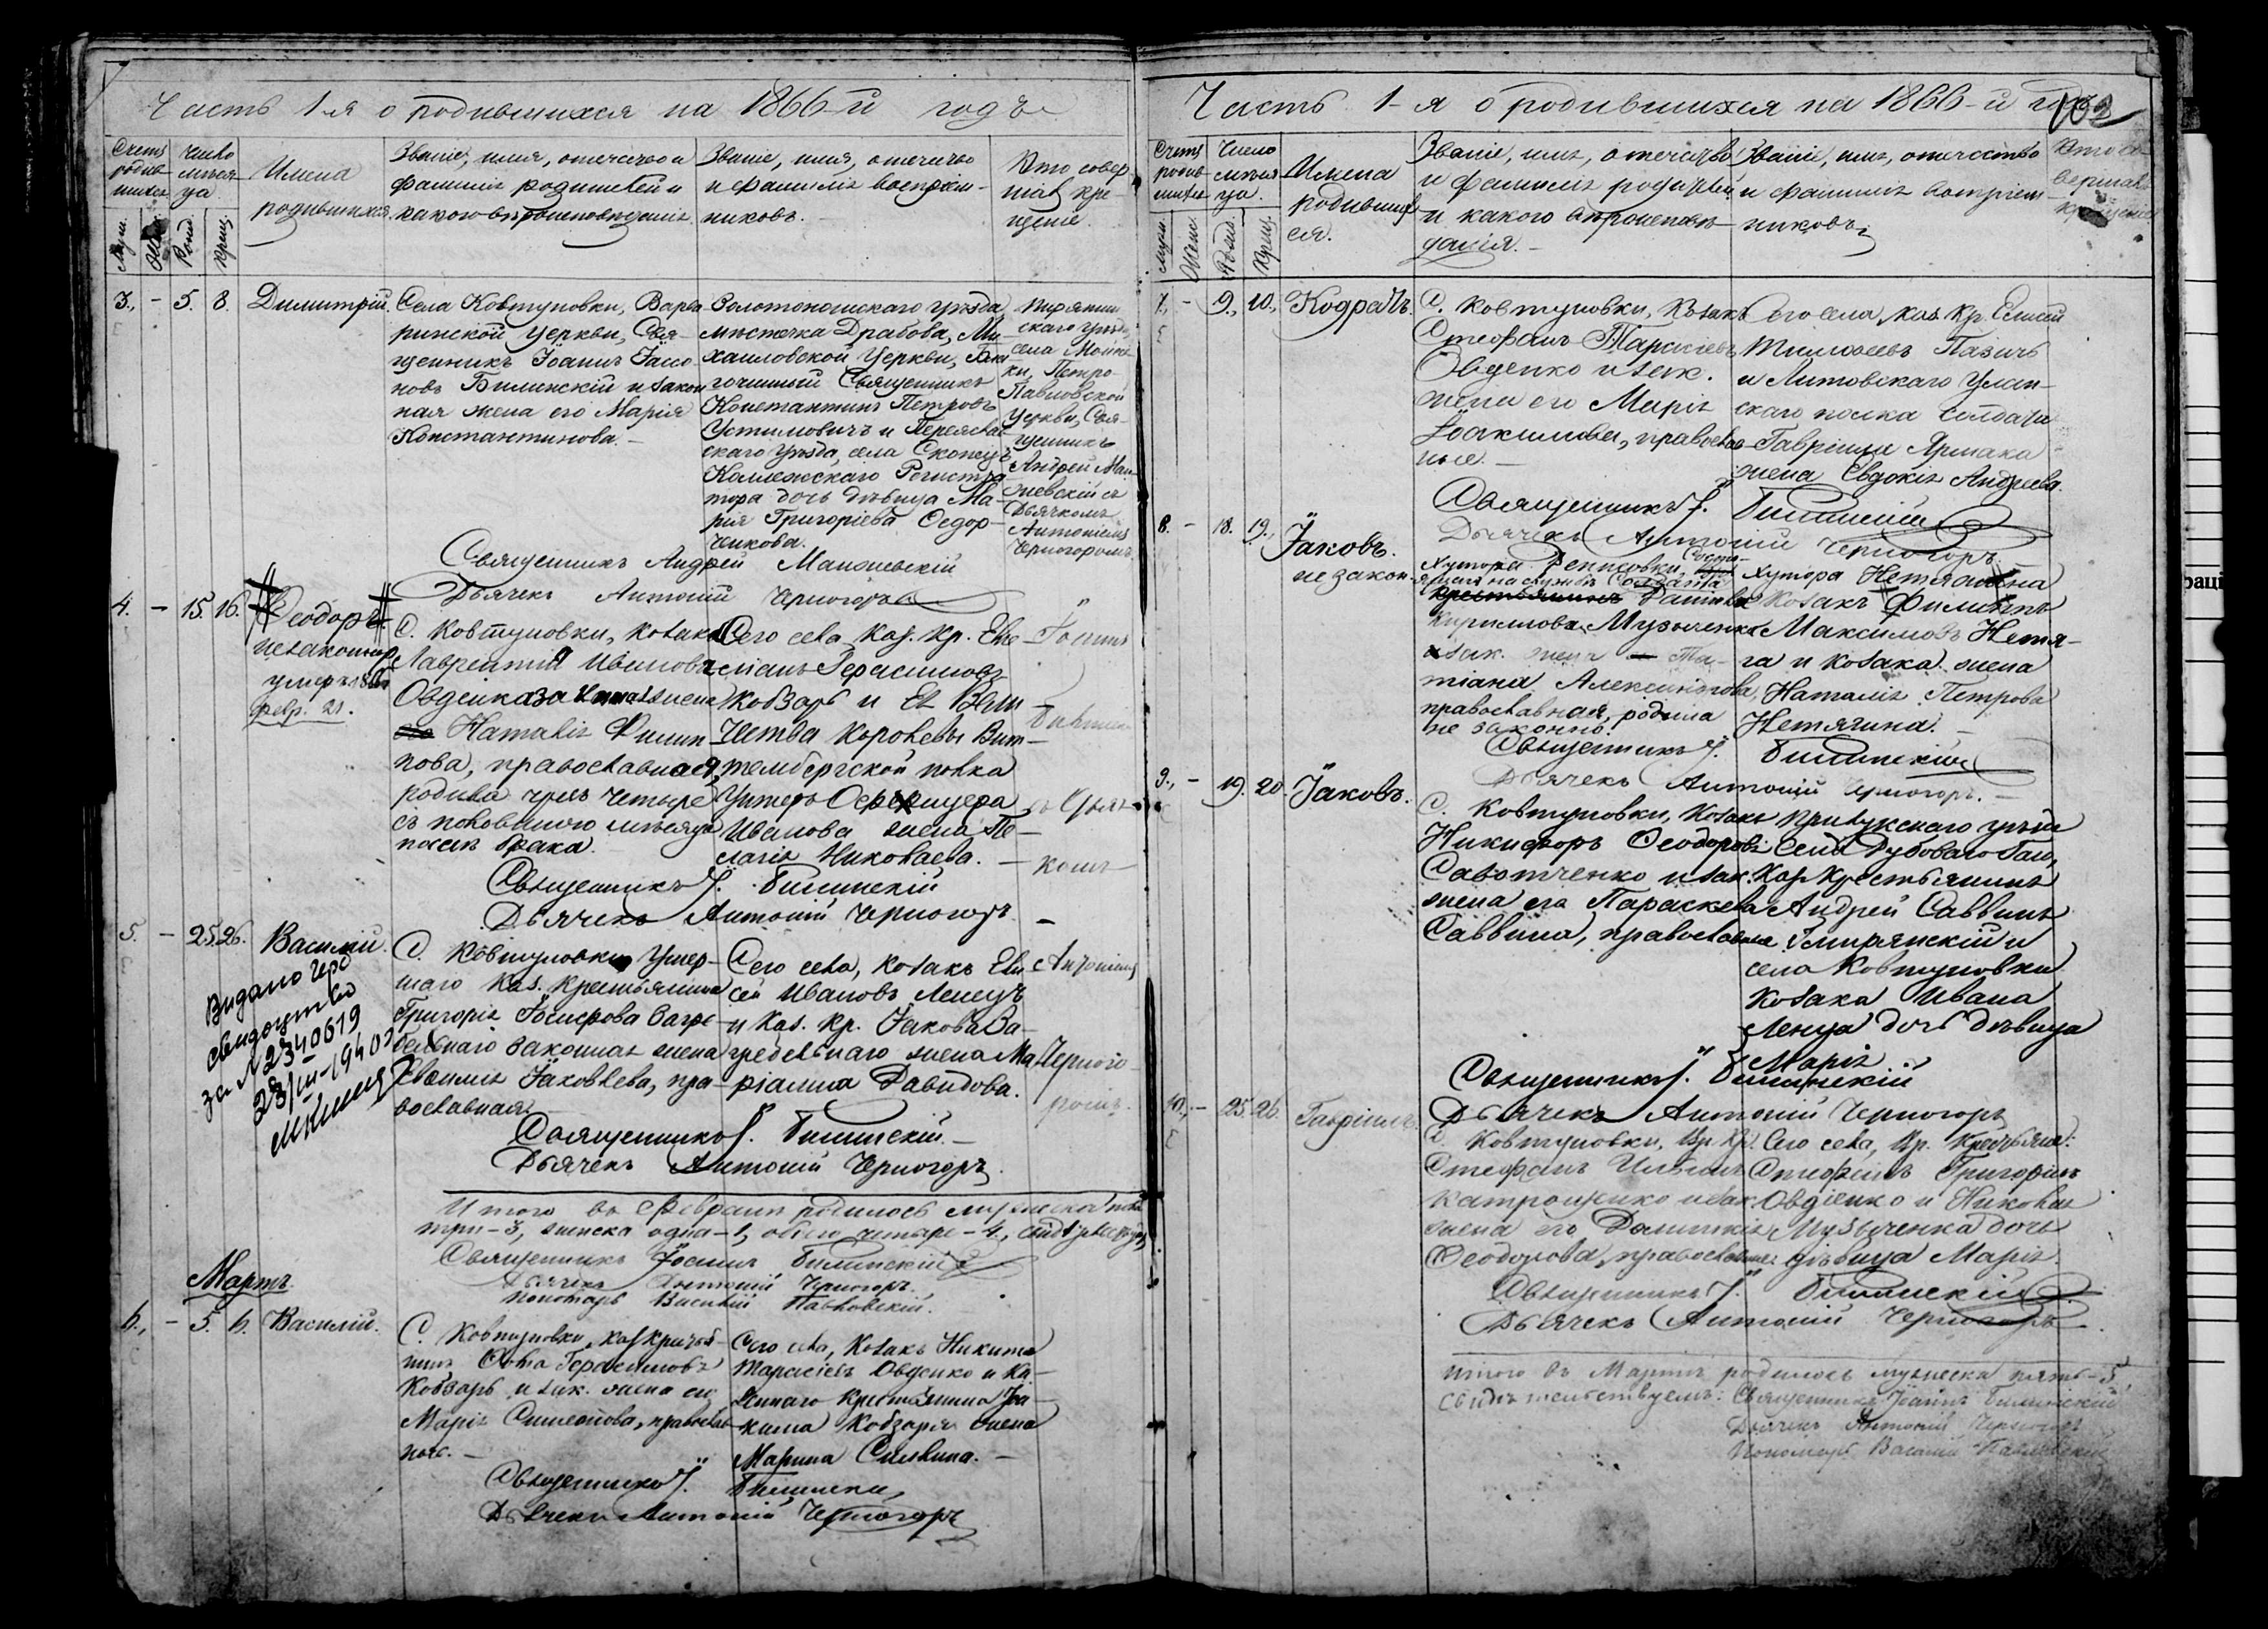 Часть 1-я о родившихся на 1866-й годъ
Счетъ родив- шихся
Число мѣсяца
Муж.
Жен.
Рожд.
Крещ.
Имена
родившихся
Званіе, имя, отечество и
фамилія родителей и
какого вѣроисповѣданія
Званіе, имя, отечество
и фамилія воспріем-
никовъ.
Кто совер
шалъ кре-
щеніе
3., - 5. 8. Димитрій.
Села Ковтуновки, Варва-
ринской Церкви, Свя-
щенникъ Іоаннъ
Билинскій и закон
ная жена его Марія
Константинова.
Золотоношскаго уѣзда,
мѣстечка Драбова, Ми-
хаиловской Церкви, Бла-
гочинный Священникъ
Константинъ Петровъ
Устимовичъ и Переяслав
скаго уѣзда, села Скопецъ
Коллежскаго Регистра
тора дочь дѣвица Ма-
рія Григоріева Ѳедор-
ченкова.
Пирятин
скаго уѣзда
села
ки, Петро-
Павловской
Церкви, Свя-
щенникъ
Андрей Ман
жевскій съ
Дьячкомъ
Антоніемъ
Черногоромъ
Священникъ Андрей Манжевскій
Дьячекъ Антоній Черногоръ
4. - 15. 16. Ѳеодоръ
незаконнор
умеръ 186
февр. 21.
С. Ковтуновки, козака
Лаврентія Иванова
Овденка законная жена
Наталія Филип
пова, православная,
родила чрезъ четыре
съ половиною мѣсяца
послѣ брака.
Сего села Каз. Кр. Еме
ліанъ Герасимовъ
Кобзарь и Ея Вели
чества Королевы Вит-
тембергской полка
Унтеръ Офицера
Иванова жена Пе-
лагія Николаева.
Священникъ І. Билинскій
Дьячекъ Антоній Черногоръ
5. - 25. 26. Василій.
Видано
свидоцтво
за № 2340619
23/III-1940
С. Ковтуновки Умер-
шаго Каз. Крестьянина
Григорія
бельнаго законная жена
Іаковлева, пра-
вославная.
Сего села, козакъ Ели
сей Ивановъ Ленецъ
и Каз. Кр. Іакова За-
гребельнаго жена Ма
ріамна Давидова.
съ Дьяч
комъ
Антоніемъ
Черного-
ромъ.
Священникъ І. Билинскій.
Дьячекъ Антоній Черногоръ.
Итого въ Февралѣ родилось мужеска пола
три - 3, женска одна - 1, обоего четыре - 4,
Священникъ Іоаннъ Билинскій
Дьячекъ Антоній Черногоръ.
Пономарь Василій Павловскій.
Мартъ.
6., - 5. 6. Василій.
С. Ковтуновки, каз крестья-
нинъ Ѳома Герасимовъ
Кобзарь и зак. жена его
Марія Симеонова, православ
ные.
Сего села, Козакъ Никита
Тарасіевъ Овденко и Ка-
зеннаго Крестьянина Іоа-
кима Кобзаря жена
Марина Саввина.
Священникъ І. Билинскій
Дьячекъ Антоній Черногоръ
Часть 1-я о родившихся на 1866-й годъ
102
Счетъ родив- шихся
Число мѣся ца.
Муж.
Женс.
Рожд.
Крещ.
Имена
родивших
ся.
Званіе, имя, отечество
и фамилія родителей
и какого вѣроисповѣ
данія.
Званіе, имя, отечество
и фамилія воспріем
никовъ
Кто со
вершалъ
крещеніе
7., - 9., 10., Кодратъ.
С. Ковтуновки, Козакъ
Стефанъ Тарасіевъ
Овденко и зак.
жена его Марія
Іоакимова, православ
ные.
Сего села, каз. Кр.
Тимоѳеевъ
и Литовскаго Улан-
скаго полка солдата
Гавріила Ярмака
жена Евдокія Андреева.
Священникъ І. Билинскій
Дьячекъ Антоній Черногоръ
8. - 18. 19. Іаковъ.
незакон.
Хутора
на службѣ Солдата
Даніила
Кирилова Музыченка
зак. жена Та-
тіана Александрова,
православная, родила
не законно.
Хутора
Козакъ Филиппъ
Максимовъ Нетя-
га и козака жена
Наталія Петрова
Нетягина.
Священникъ І. Билинскій
Дьячекъ Антоній Черногоръ.
9., - 19. 20. Іаковъ.
С. Ковтуновки, Козакъ
Никифоръ Ѳеодоровъ
Савотченко и зак.
жена его Параскева
Саввина, православные
Прилукскаго уѣзда
Села Дубоваго Гаю,
Каз Крестьянинъ
Андрей Саввинъ
и
села Ковтуновки
козака Ивана
Ленца дочь дѣвица
Марія
Священникъ І. Билинскій
Дьячекъ Антоній Черногоръ
10., - 25. 26. Гавріилъ.
С. Ковтуновки, Вр. Кр.
Стефанъ Ильинъ
Катрощенко и зак.
жена его Домникія
Ѳеодорова, православные
Сего села, Вр. Крестьян:
Стефанъ Григорьевъ
Овдіенко и Николая
Музыченка дочь
дѣвица Марія.
Священникъ І. Билинскій
Дьячекъ Антоній Черногоръ
Итого въ Мартѣ родилось мужеска пять - 5
Свидѣтельствуемъ: Священникъ Іоаннъ Билинскій
Дьячекъ Антоній Черногоръ
Пономарь Василій Павловскій